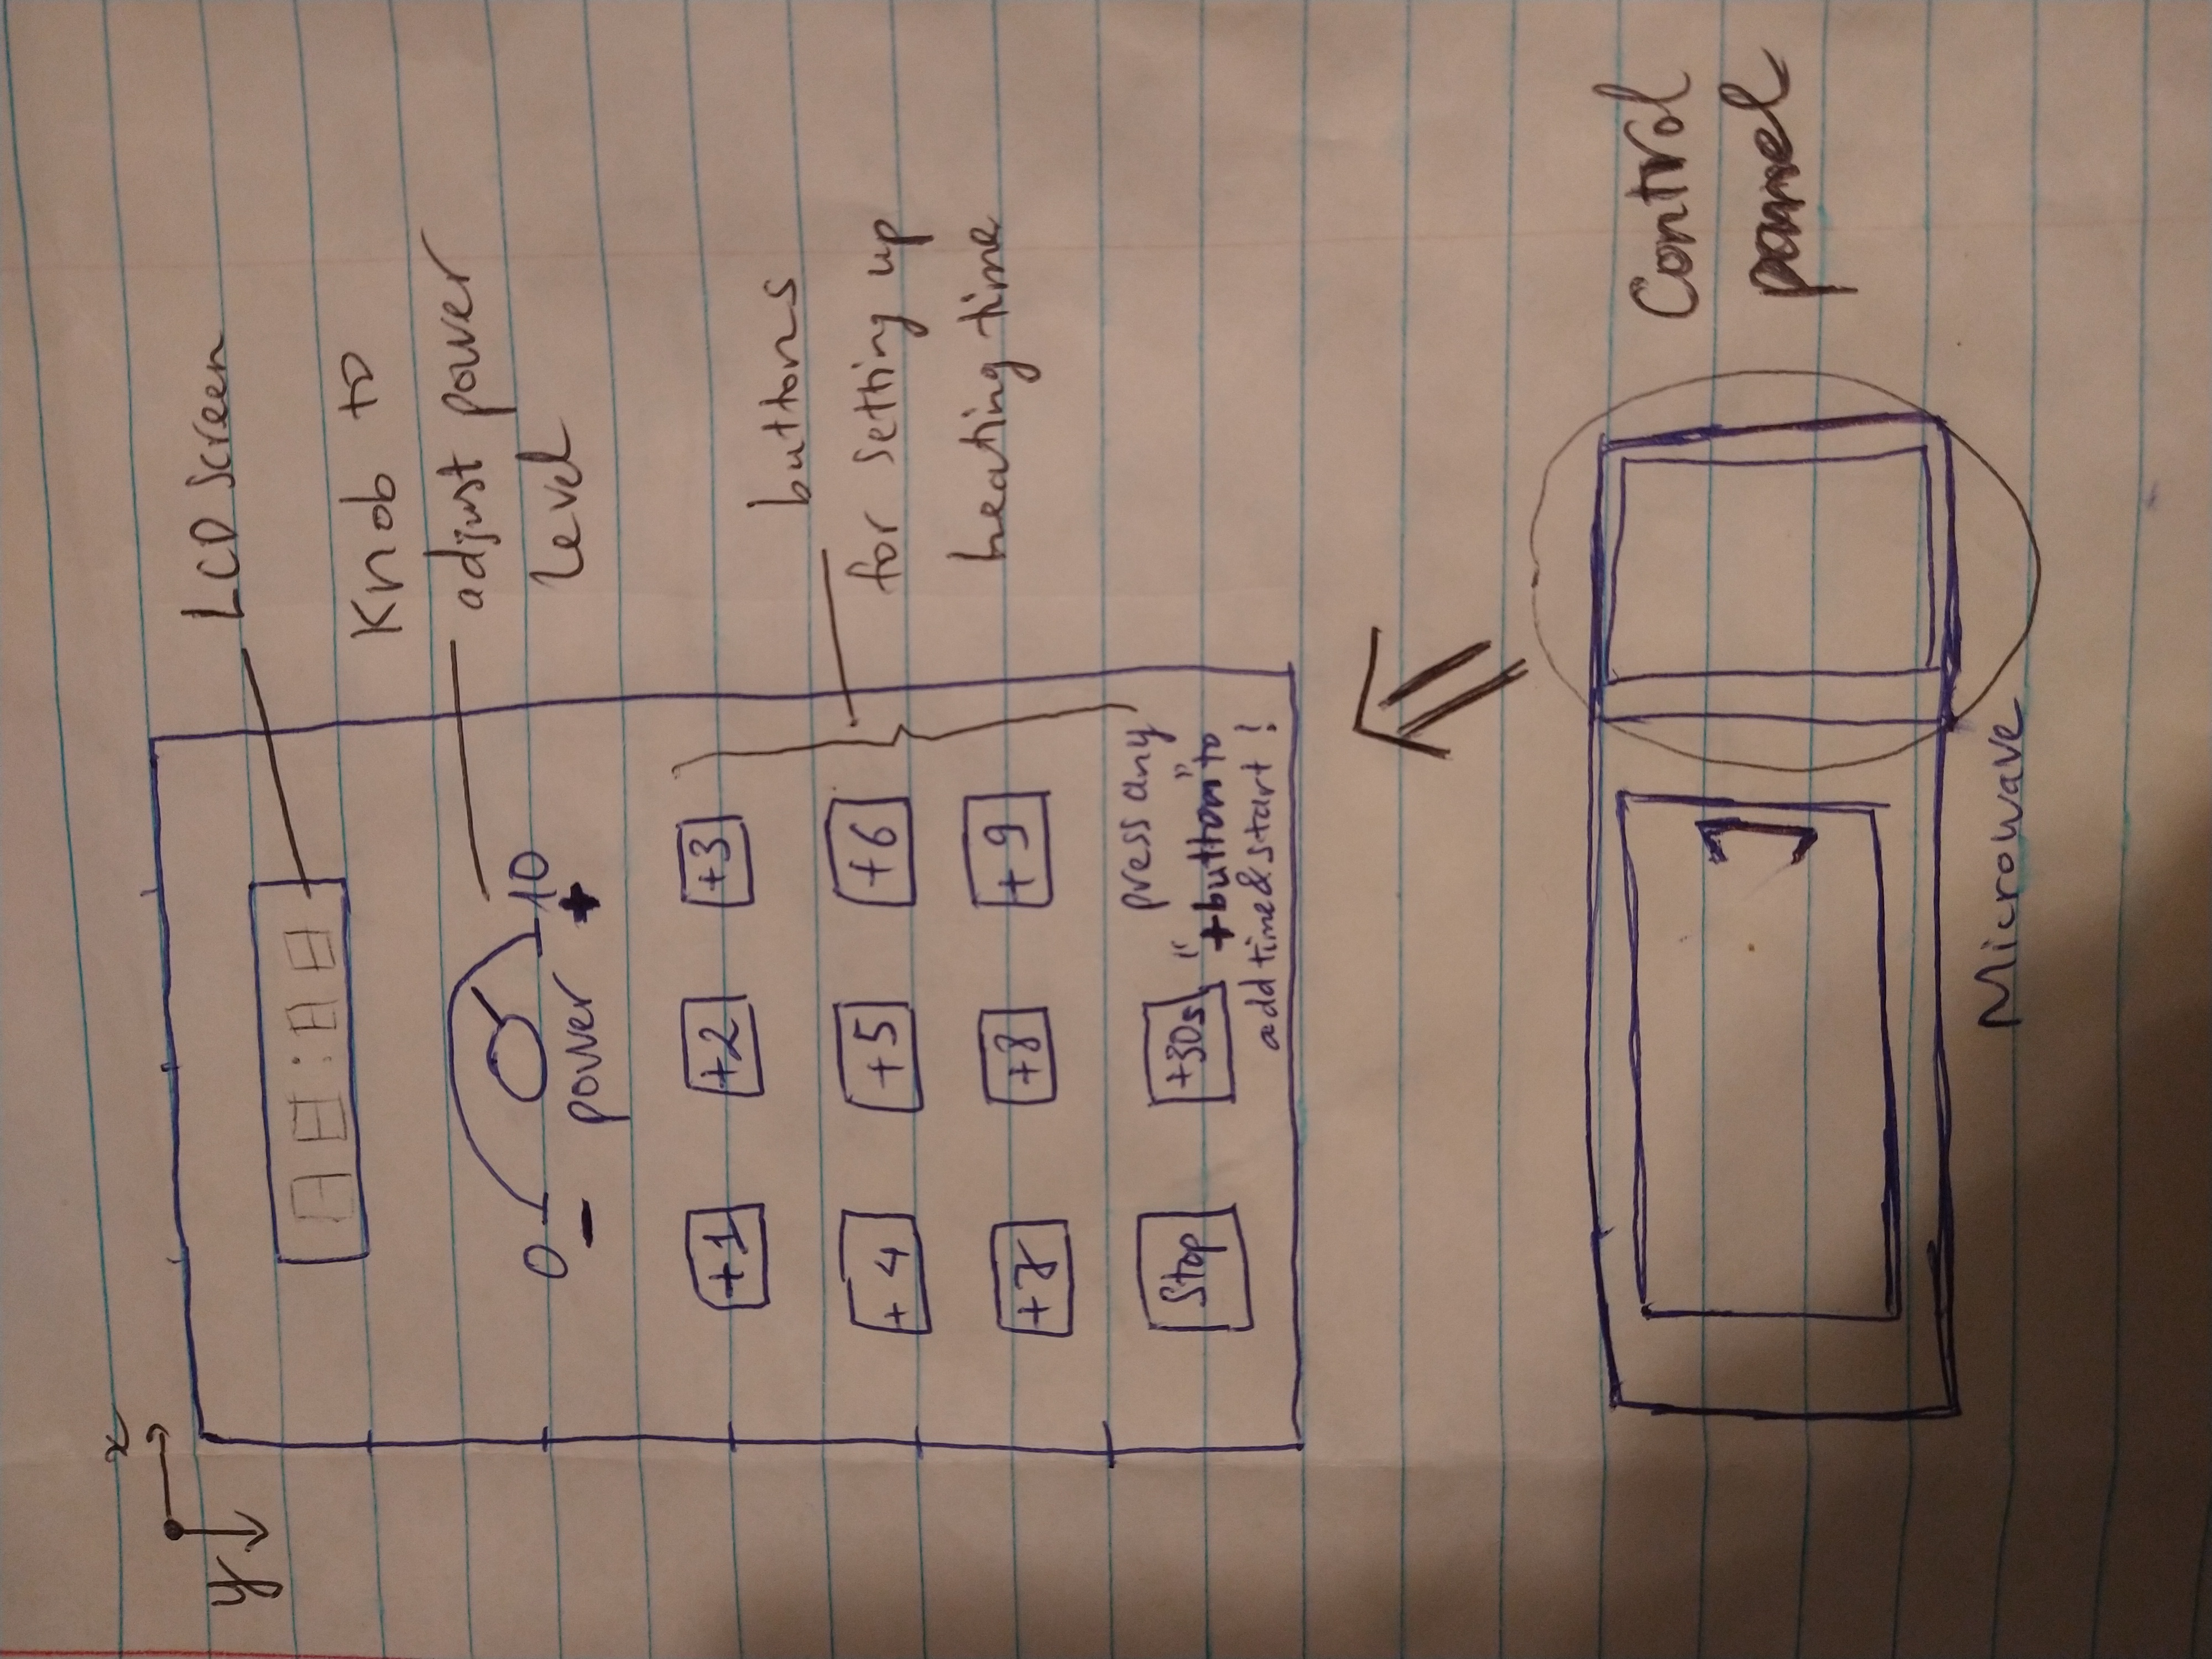 x
y
LCD screen
88:88
Knob to
adjust power
level
0 10
- power +
+1 +2 +3
+4 +5 +6
+7 +8 +9
buttons
for setting up
heating time
Stop +30s
press any
"+button" to
add time & start!
Control
panel
Microwave